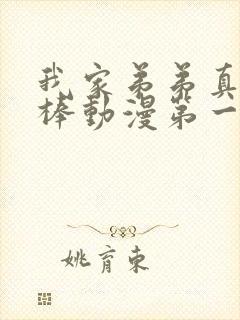 我家弟弟真
棒動漫第一
姚育東